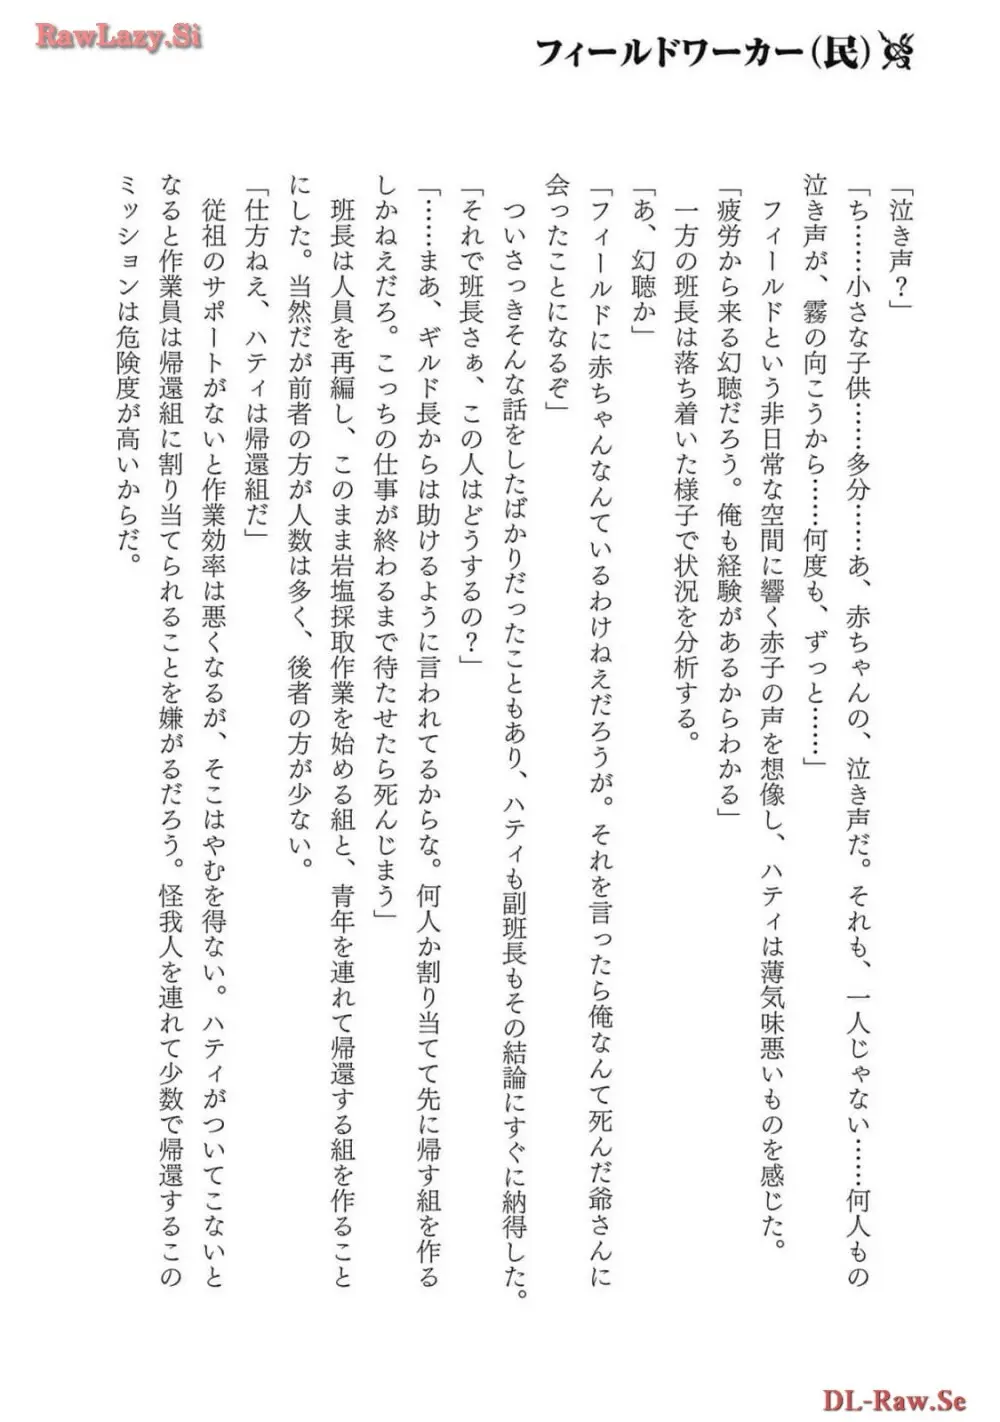 RawLazy.Si
フィールドワーカー（民）
「泣き声？」
「ち……小さな子供……多分……あ、赤ちゃんの、泣き声だ。それも、一人じゃない……何人もの
泣き声が、霧の向こうから……何度も、ずっと……」
フィールドという非日常な空間に響く赤子の声を想像し、ハティは薄気味悪いものを感じた。
「疲労から来る幻聴だろう。俺も経験があるからわかる」
一方の班長は落ち着いた様子で状況を分析する。
「あ、幻聴か」
「フィールドに赤ちゃんなんているわけねえだろうが。それを言ったら俺なんて死んだ爺さんに
会ったことになるぞ」
ついさっきそんな話をしたばかりだったこともあり、ハティも副班長もその結論にすぐに納得した。
「それで班長さぁ、この人はどうするの？」
「……まあ、ギルド長からは助けるように言われてるからな。何人か割り当てて先に帰す組を作る
しかねえだろ。こっちの仕事が終わるまで待たせたら死んじまう」
班長は人員を再編し、このまま岩塩採取作業を始める組と、青年を連れて帰還する組を作ること
にした。当然だが前者の方が人数は多く、後者の方が少ない。
「仕方ねえ、ハティは帰還組だ」
従祖のサポートがないと作業効率は悪くなるが、そこはやむを得ない。ハティがついてこないと
なると作業員は帰還組に割り当てられることを嫌がるだろう。怪我人を連れて少数で帰還するこの
ミッションは危険度が高いからだ。
DL-Raw.Se